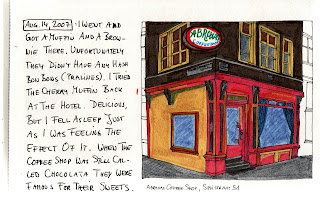 Aug. 14, 2007 - I Went And
Got A Muffin And A Brow-
nie There. Unfortunately
They Didn't Have Any Hash
Bon Bons (Pralines). I Tried
The Cherry Muffin Back
At The Hotel. Delicious,
But I Fell Asleep Just
As I Was Feeling The
Effect Of It. When The
Coffee Shop Was Still Cal-
led Chocolata They Were
Famous For Their Sweets.
ABRAXAS
Abraxas Coffee Shop,